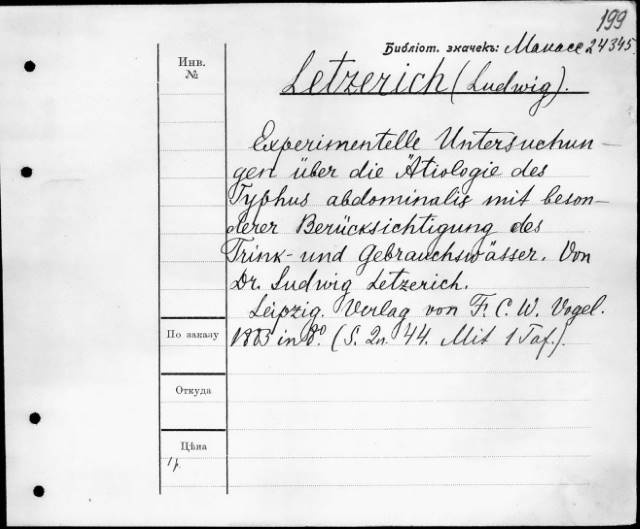 199
Библіот. значекъ: Манасе 24345.
Инв.
№
Letzerich (Ludwig).
Experimentelle Untersuchun-
gen über die Ätiologie des
Typhus abdominalis mit beson-
derer Berücksichtigung des
Trink- und Gebrauchswässer. Von
Dr. Ludwig Letzerich.
Leipzig. Verlag von F. C. W. Vogel.
in 8° (S. 2n. 44. Mit 1 Taf.).
По заказу
Откуда
Цѣна
1 р.